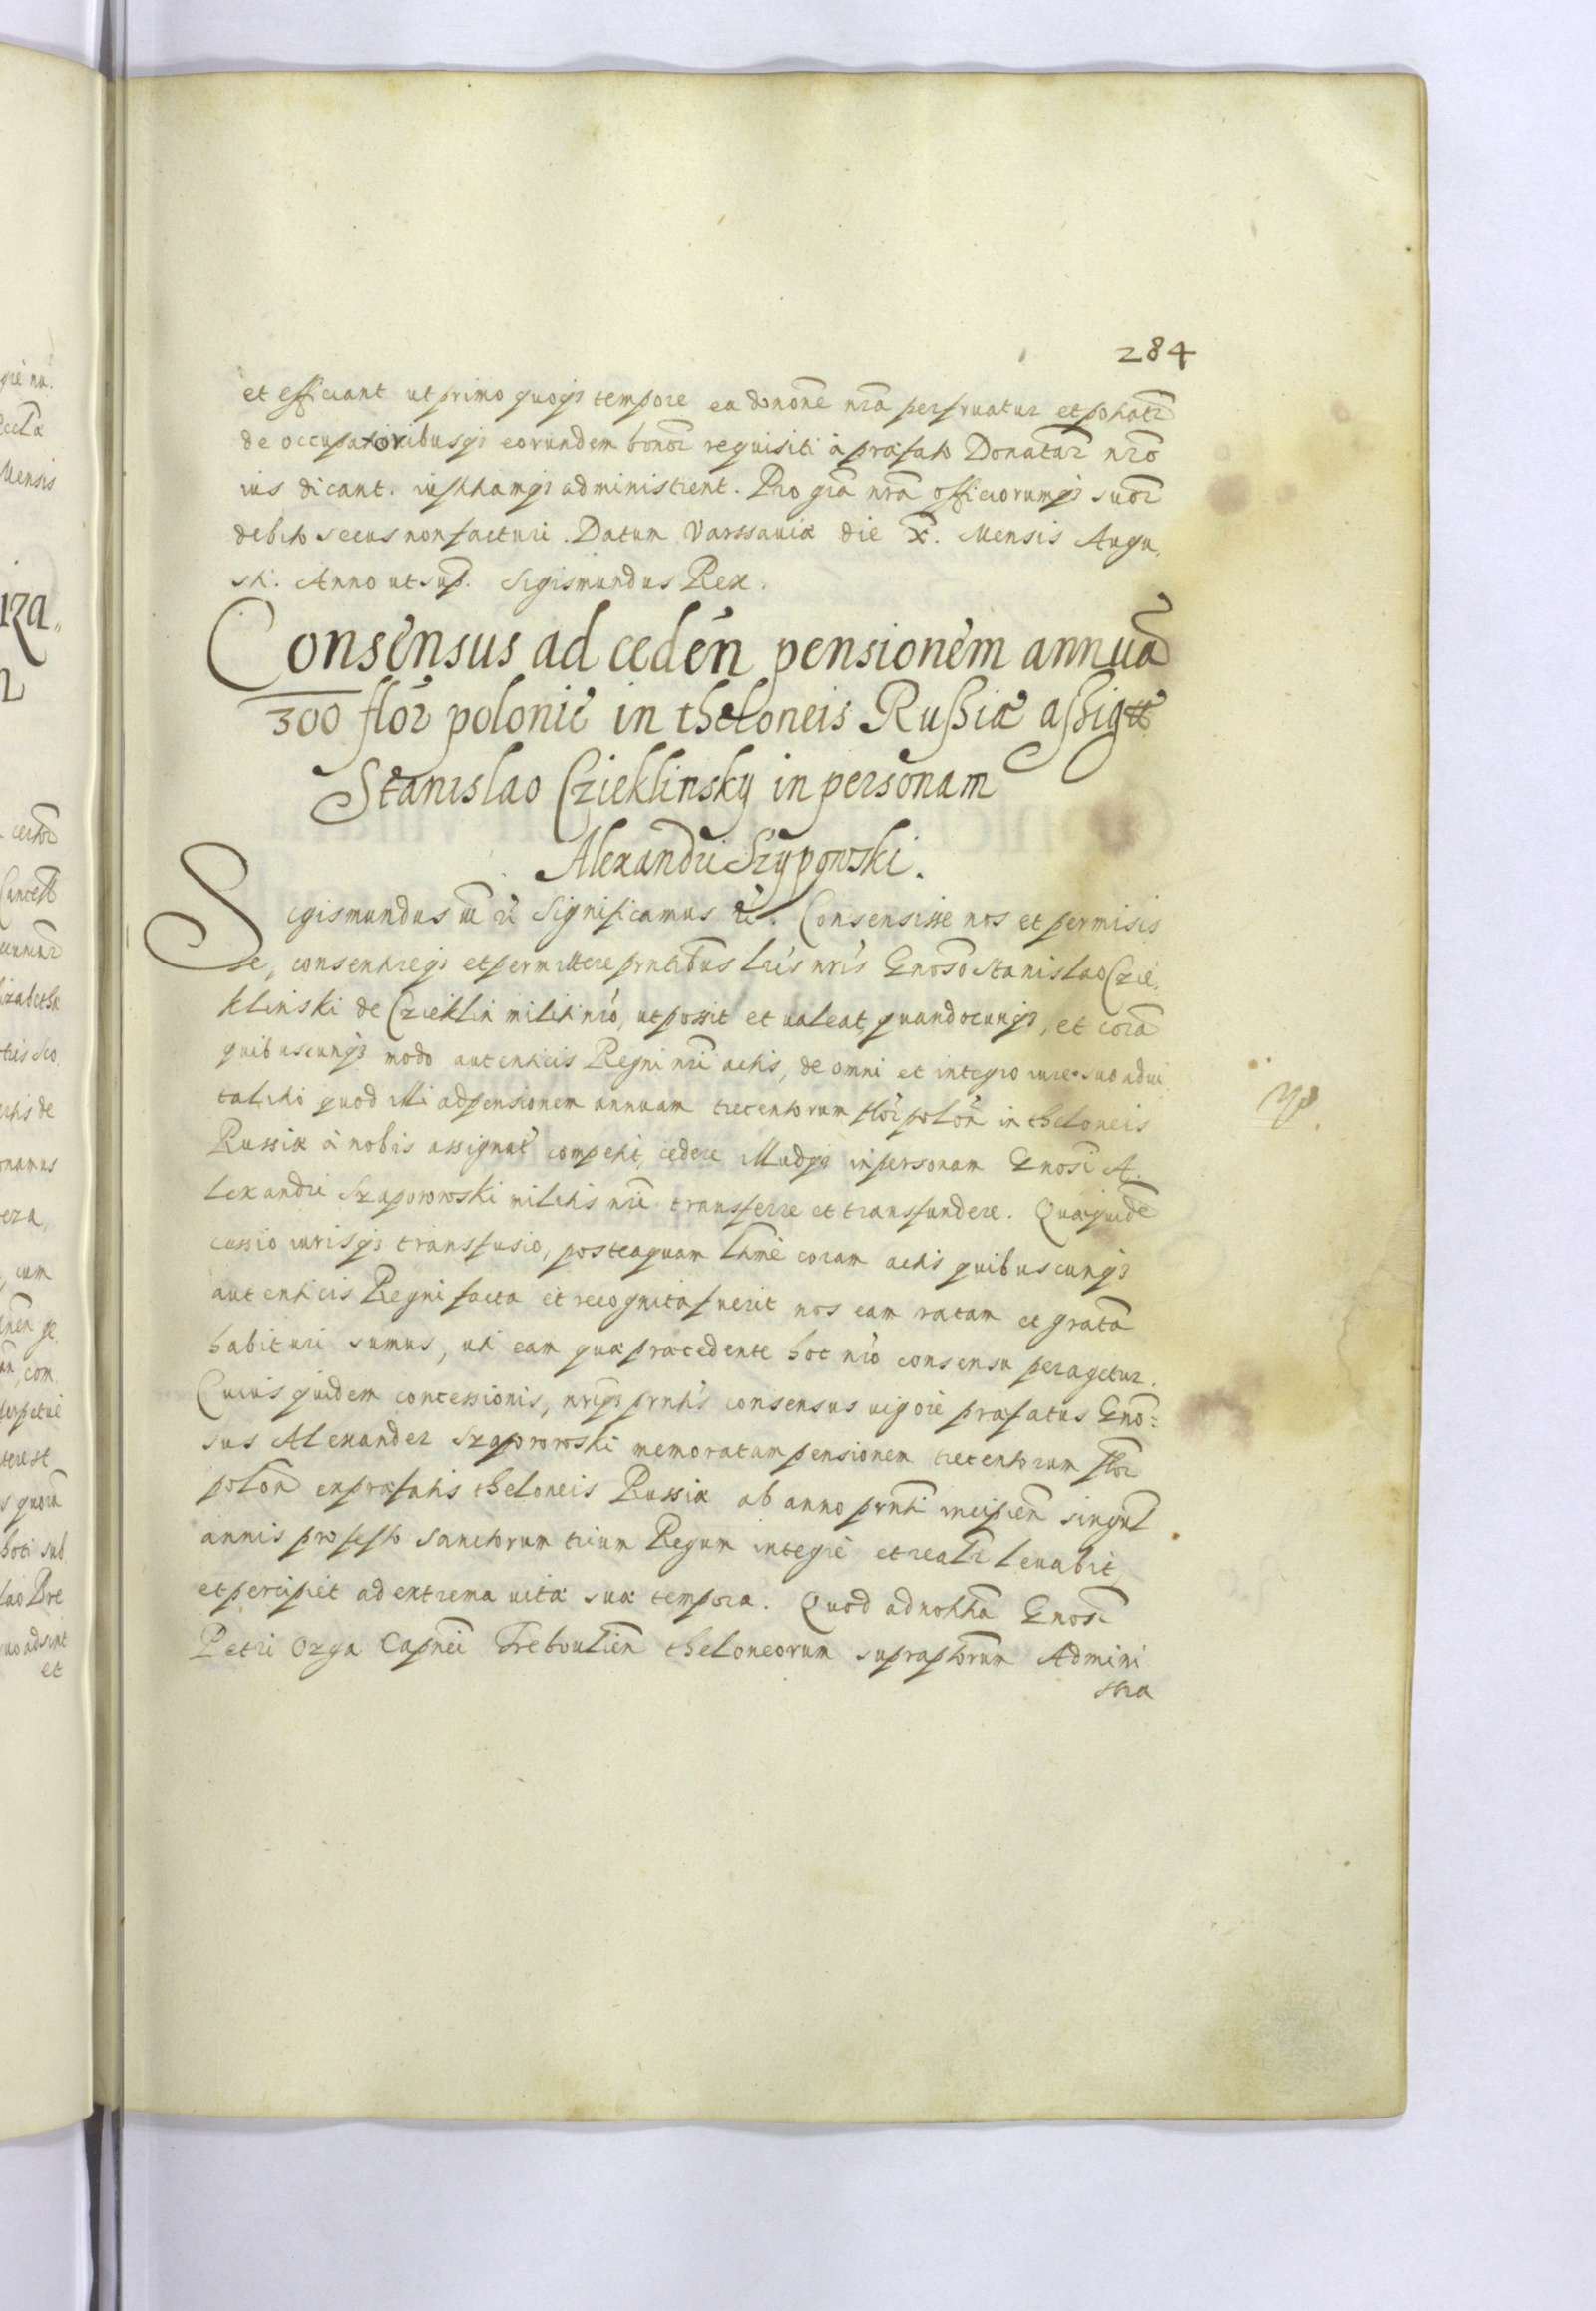 284
et efficiant ut primo quoqȝ tempore ea donoñe nr̃a perfruatur et potiatr̃
de occupatoribusqȝ eorundem bonor̃ requisiti à præfato Donatar̃ nr̃o
ius dicant. iustitiamqȝ administrent. Pro gr̃a nr̃a officiorumqȝ suor̃
debito secus non facturi. Datum Varssaviæ die X. Mensis Augu,
sti. Anno ut sup̃. Sigismundus Rex.
Consensus ad ceden̄ pensionem annuã
300 flor̃ polonic̃ in theloneis Russiæ assig
Stanislao Czieklinsky in personam
Alexandri Szypowski.
Sigismundus Significamus Consensisse nos et permisis
se, consentireqȝ et permittere pr̃ntibus lr̃is nr̃is Gnoso Stanislao Czie,
klinski de Czieklin militi nr̃o, ut possit et valeat, quandocunqȝ, et corã
quibuscunqȝ modo autenticis Regni nr̃i actis, de omni et integro iure suo advi,
talitio quod illi ad pensionem annuam trecentorum flor̃ polon̄ in theloneis
Russiæ à nobis assignat̃ competit, cedere illudqȝ in personam Gnosi A,
lexandri Szaporowski militis nr̃i transferre et transfundere. Quæquidẽ
cessio iurisqȝ transfusio, posteaquam ltm̃e coram actis quibuscunqȝ
autenticis Regni facta et recognita fuerit nos eam ratam et gratã
habituri sumus, uti eam quæ præcedente hoc nr̃o consensu peragetur.
Cuius quidem concessionis, nr̃iqȝ pr̃ntis consensus vigore præfatus Gno=
sus Alexander Szaporowski memoratam pensionem trecentorum flor̃
polon̄ ex præfatis theloneis Russiæ ab anno pr̃nti incipien̄ singul̃
annis pro festo Sanctorum trium Regum integrè et realr̃ levabit,
et percipiet ad extrema vitæ suæ tempora. Quod ad notitiã Gnosi
Petri Ozga Capnei Treboulien̄ theloneorum suprapt̃orum Admini
stra